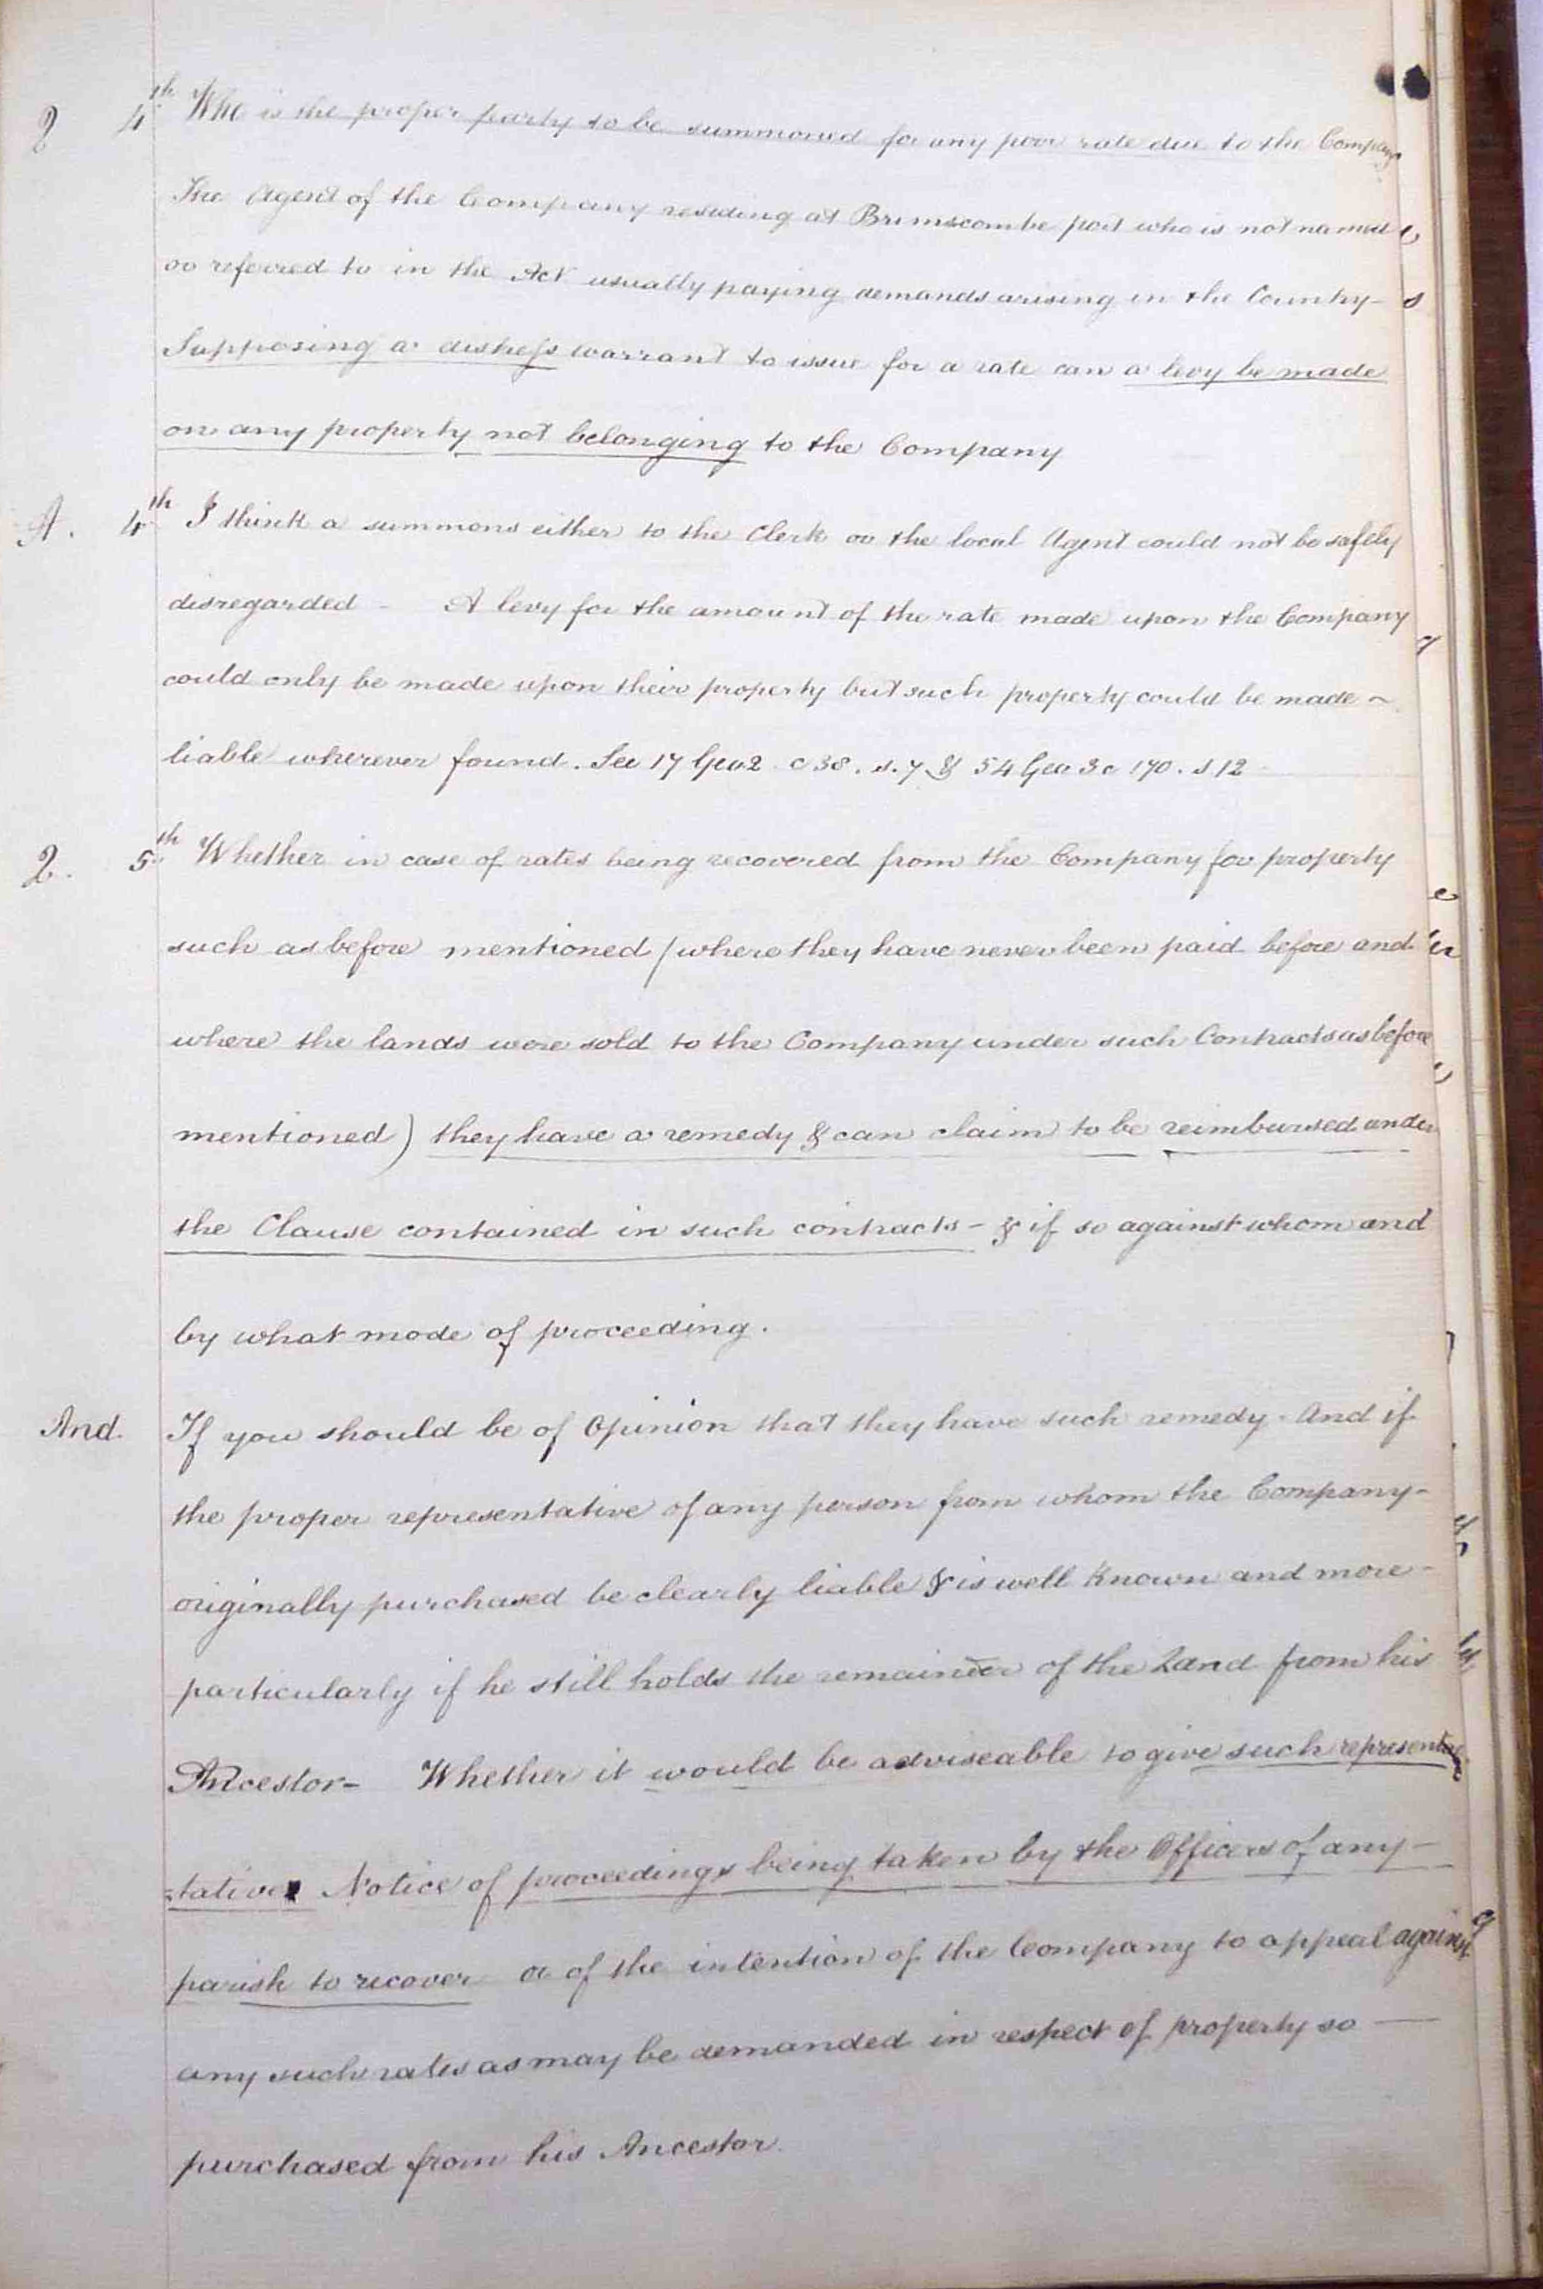 Q 4th Who is the proper party to be summoned for any poor rate due to the Company
The Agent of the Company residing at Brimscombe port who is not named
or referred to in the Act usually paying demands arising in the Country -
Supposing a distress warrant to issue for a rate can a levy be made
on any property not belonging to the Company
A. 4th I think a summons either to the Clerk or the local Agent could not be safely
disregarded - A levy for the amount of the rate made upon the Company
could only be made upon their property but such property could be made ~
liable wherever found. See 17 Geo 2 c 38. s. 7 & 54 Geo 3 c 170. s 12
Q. 5th Whether in case of rates being recovered from the Company for property
such as before mentioned (where they have never been paid before and
where the lands were sold to the Company under such Contracts as before
mentioned) they have a remedy & can claim to be reimbursed under
the Clause contained in such contracts - & if so against whom and
by what mode of proceeding.
And If you should be of Opinion that they have such remedy. And if
the proper representative of any person from whom the Company -
originally purchased be clearly liable & is well known and more -
particularly if he still holds the remainder of the Land from his
Ancestor - Whether it would be adviseable to give such represen
tative Notice of proceedings being taken by the Officers of any -
parish to recover or of the intention of the Company to appeal against
any such rates as may be demanded in respect of property so -
purchased from his Ancestor.